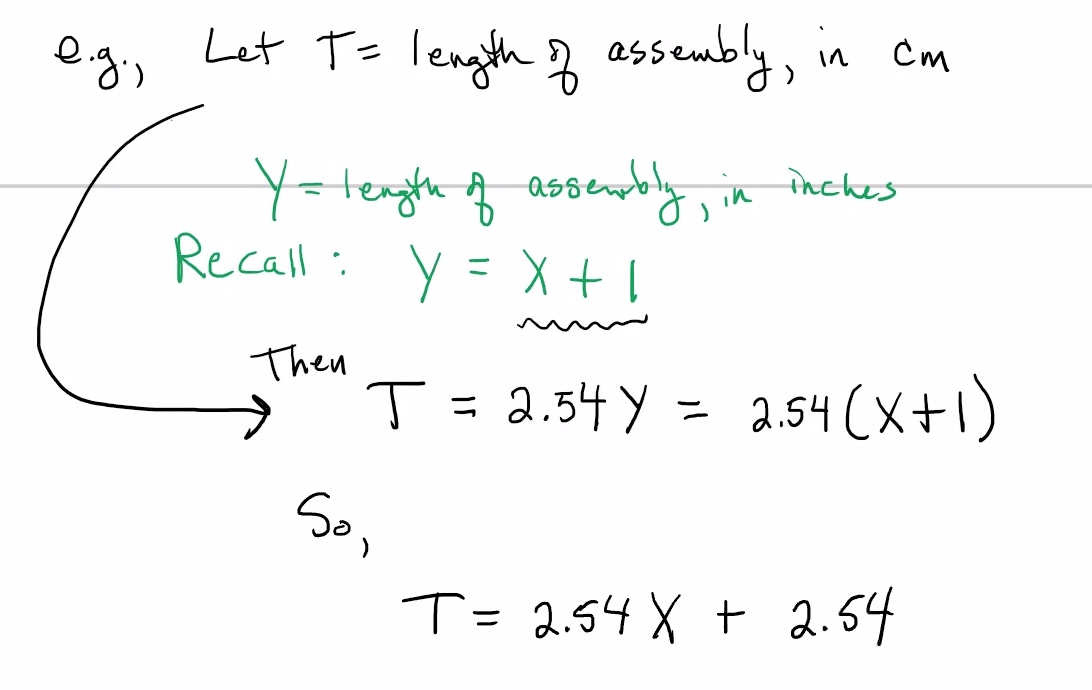 e.g., Let T = length of assembly, in cm
Y = length of assembly, in inches
Recall : Y = X + 1
Then T = 2.54Y = 2.54(X+1)
So,
T = 2.54X + 2.54